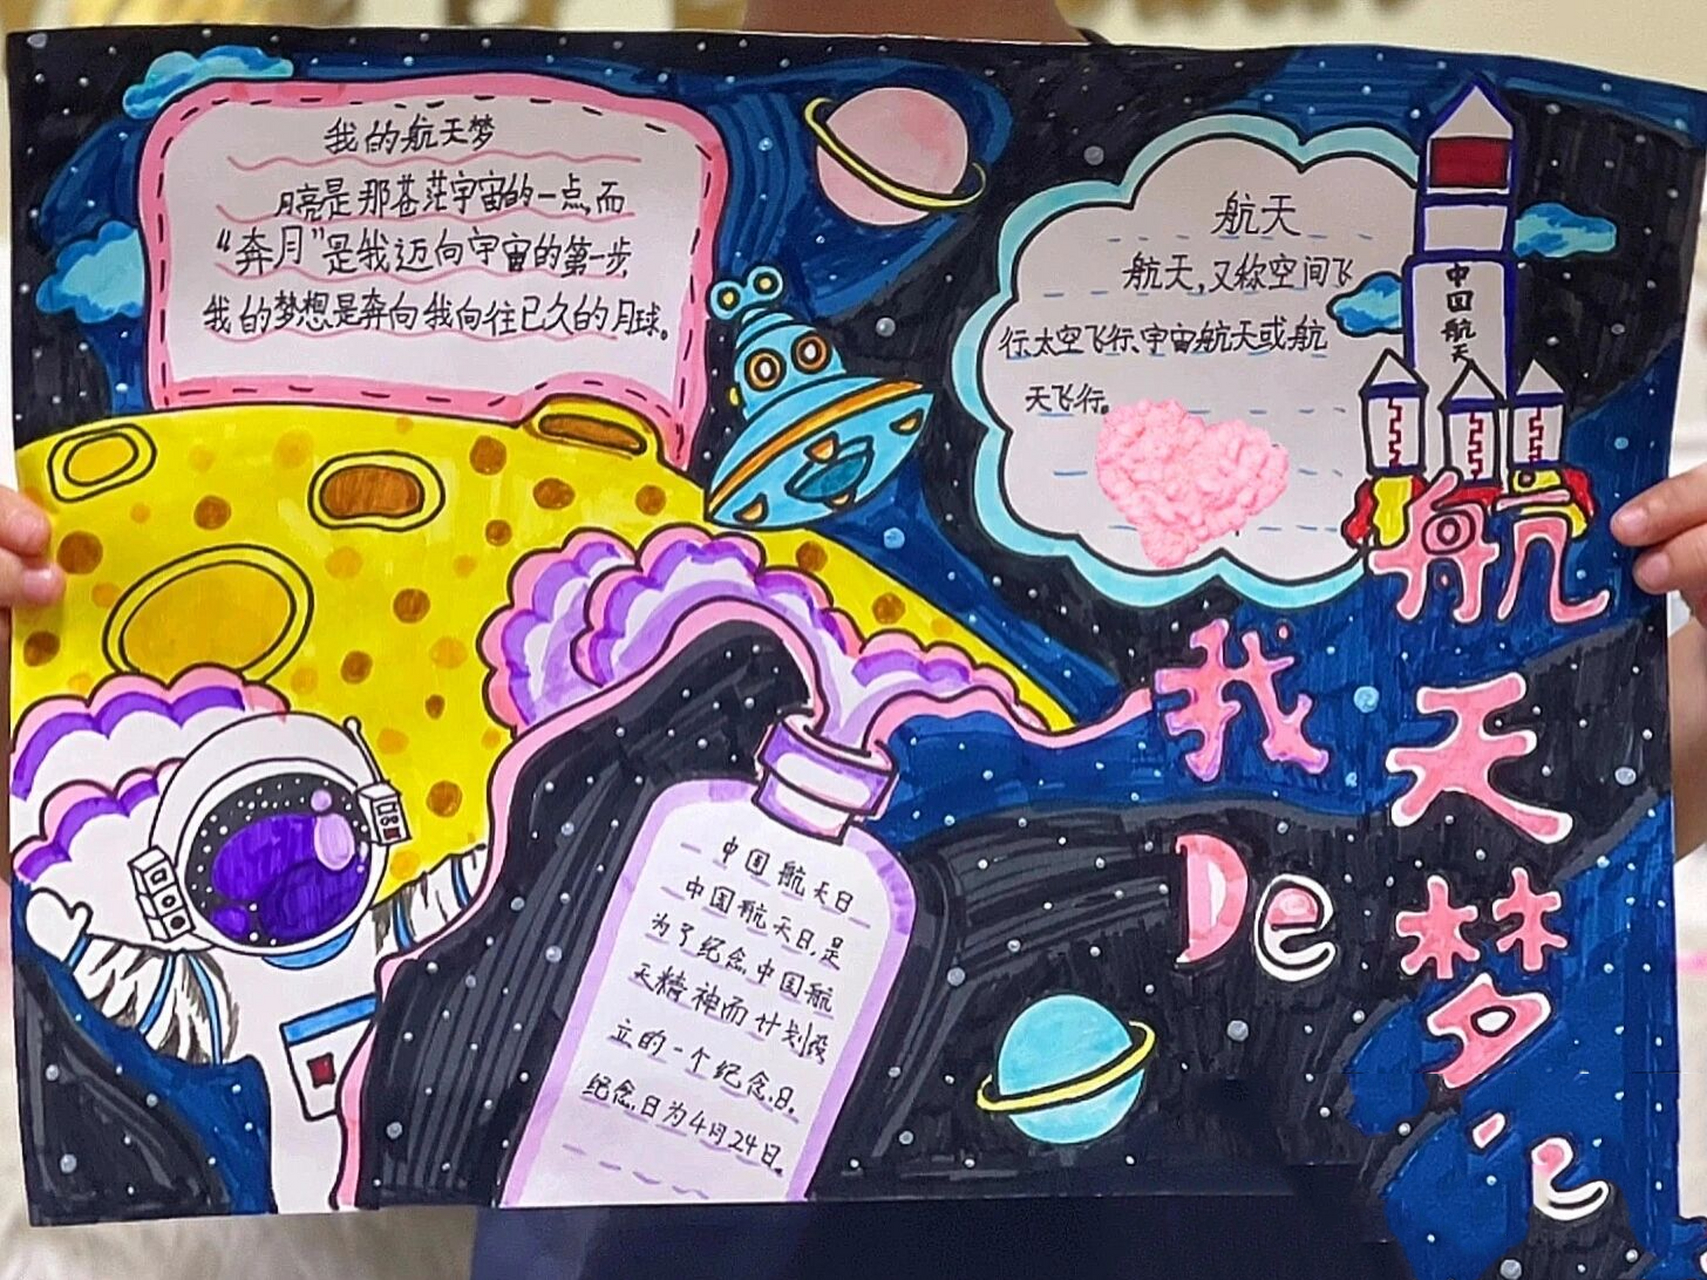 我的航天梦
月亮是那苍茫宇宙的一点,而
“奔月”是我迈向宇宙的第一步,
我的梦想是奔向我向往已久的月球。
航天
航天,又称空间飞
行、太空飞行、宇宙航天或航
天飞行。
中国航天
我De
航天梦
中国航天日
中国航天日,是
为了纪念中国航
天精神而计划设
立的一个纪念日。
纪念日为4月24日。